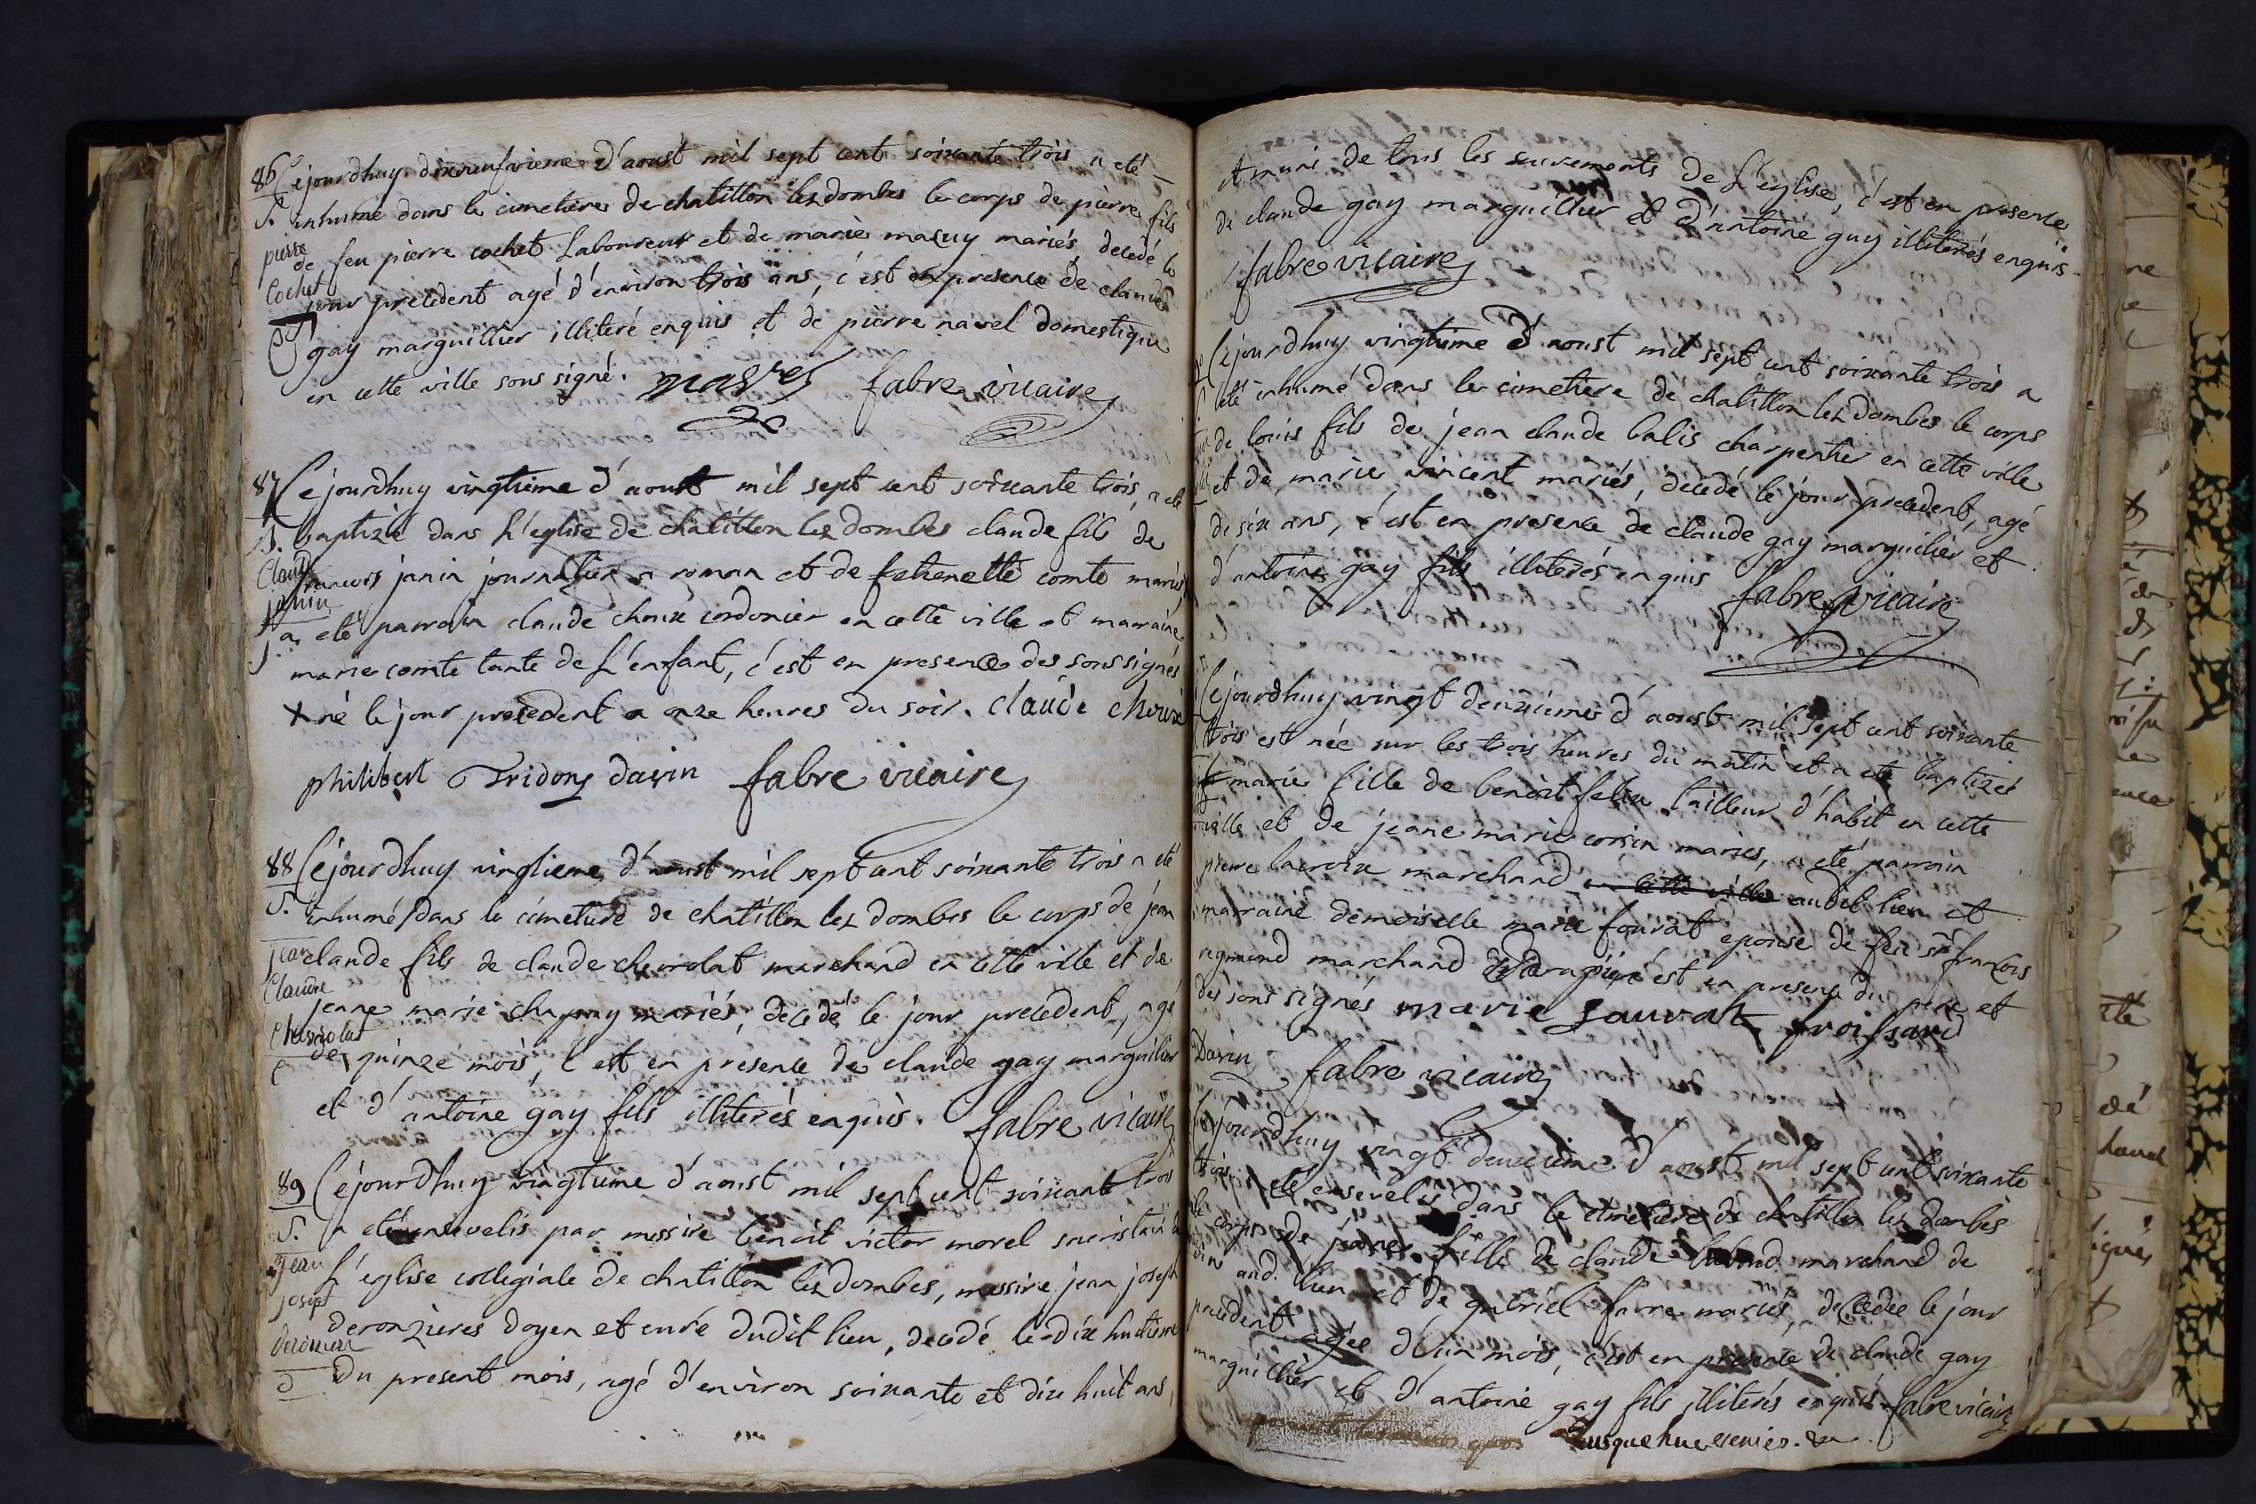 86 Cejourdhuy dixneufvieme d'aoust mil sept cent soixante trois a eté
S. inhumé dans le cimetiere de chatillon lez dombes le corps de pierre fils
pierre de feu pierre cochet Laboureur et de marie macuy mariés, decedé le
Cochet jour precedent agé d'environ trois ans, c'est en presence de claude
gay marguillier illiteré enquis et de pierre navel domestique
en cette ville sous signé. navel fabre vicaire
87 Cejourdhuy vingtieme d'aoust mil sept cent soixante trois, a eté
B. baptizé dans L'eglise de chatillon lez dombes claude fils de
Claude francois janin journalier a roman et de etienette comte mariés
janin a eté parrain claude choux cordonier en cette ville et marraine
marie comte tante de L'enfant, c'est en presence des soussignés
+ né le jour precedent a onze heures du soir. claude choux
philibert Tridon davin fabre vicaire
88 Cejourdhuy vingtieme d'aoust mil sept cent soixante trois a eté
S. inhumé dans le cimetiere de chatillon lez dombes le corps de jean
jean claude fils de claude chevrolat marchand en cette ville et de
Claude
jeane marie chapuy mariés, decedé le jour precedent, agé
Chevrolat
de quinze mois, c'est en presence de claude gay marguilier
et d'antoine gay fils illiterés enquis. fabre vicaire
89 Cejourdhuy vingtieme d'aoust mil sept cent soixante trois
S. a eté ensevelis par messire benoit victor morel sacristain de
jean L'eglise collegiale de chatillon lez dombes, messire jean joseph
joseph
deronzieres doyen et curé dudit lieu, decedé le dix huitieme
du present mois, agé d'environ soixante et dix huit ans,
et muni de tous les sacrements de L'eglise, c'est en presence
de claude gay marguillier et d'antoine gay illiterés enquis
fabre vicaire
Cejourdhuy vingtieme d'aoust mil sept cent soixante trois a
eté inhumé dans le cimetiere de chatillon lez dombes le corps
de louis fils de jean claude balis charpentier en cette ville
et de marie vincent mariés, decedé le jour precedent, agé
de six ans, c'est en presence de claude gay marguilier et
d'antoine gay fils illiterés enquis fabre vicaire
Cejourdhuy vingt deuxieme d'aoust mil sept cent soixante
trois est née sur les trois heures du matin et a eté baptizée
marie fille de benoit felix tailleur d'habit en cette
ville et de jeane marie corsin mariés, a eté parrain
pierre lacroix marchand en cette ville audit lieu et
marraine demoiselle marie fourat epouse de feu sr francois
regmond marchand drapier c'est en presence du pere et
des sous signés marie fourat froissard
Davin fabre vicaire
Cejourdhuy vingt deuxieme d'aoust mil sept cent soixante
trois a eté ensevelis dans le cimetiere de chatillon lez dombes
le corps de fille de claude marchand de
vin aud. lieu et de gabriel favre mariés, decedée le jour
precedent agée d'un mois, c'est en presence de claude gay
marguillier et d'antoine gay fils illiterés enquis fabre vicaire